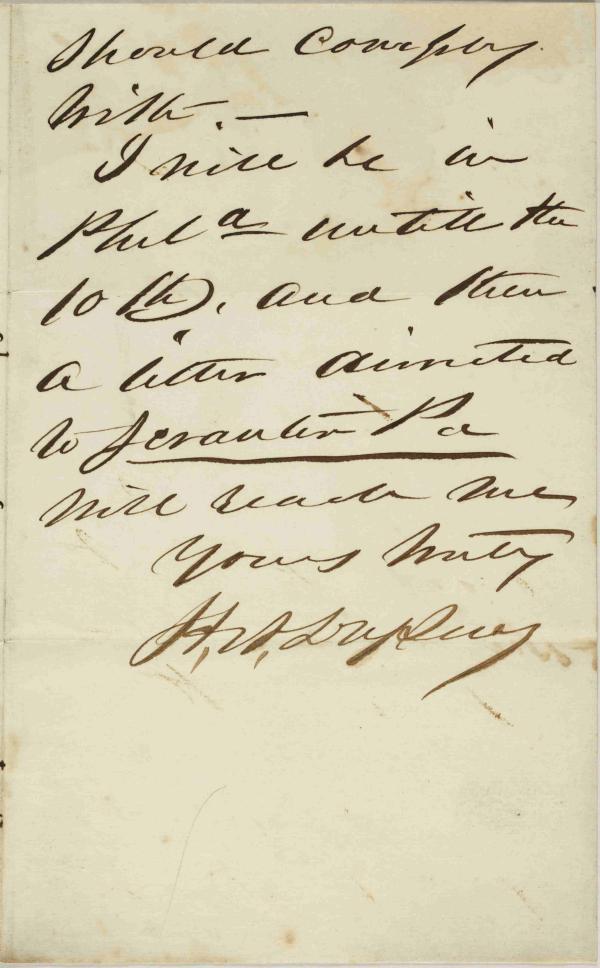 should comply
with. —
I will be in
Phila untill the
10th, and then
a letter directed
to Scranton Pa
will reach me
Yours truly
H. A.